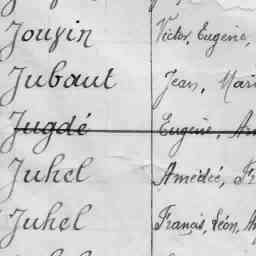 Jouvin Victor, Eugène,
Jubaut Jean, Mari
Jugdé Eugène, Am
Juhel Amédée, Fr
Juhel Français, Léon, Au